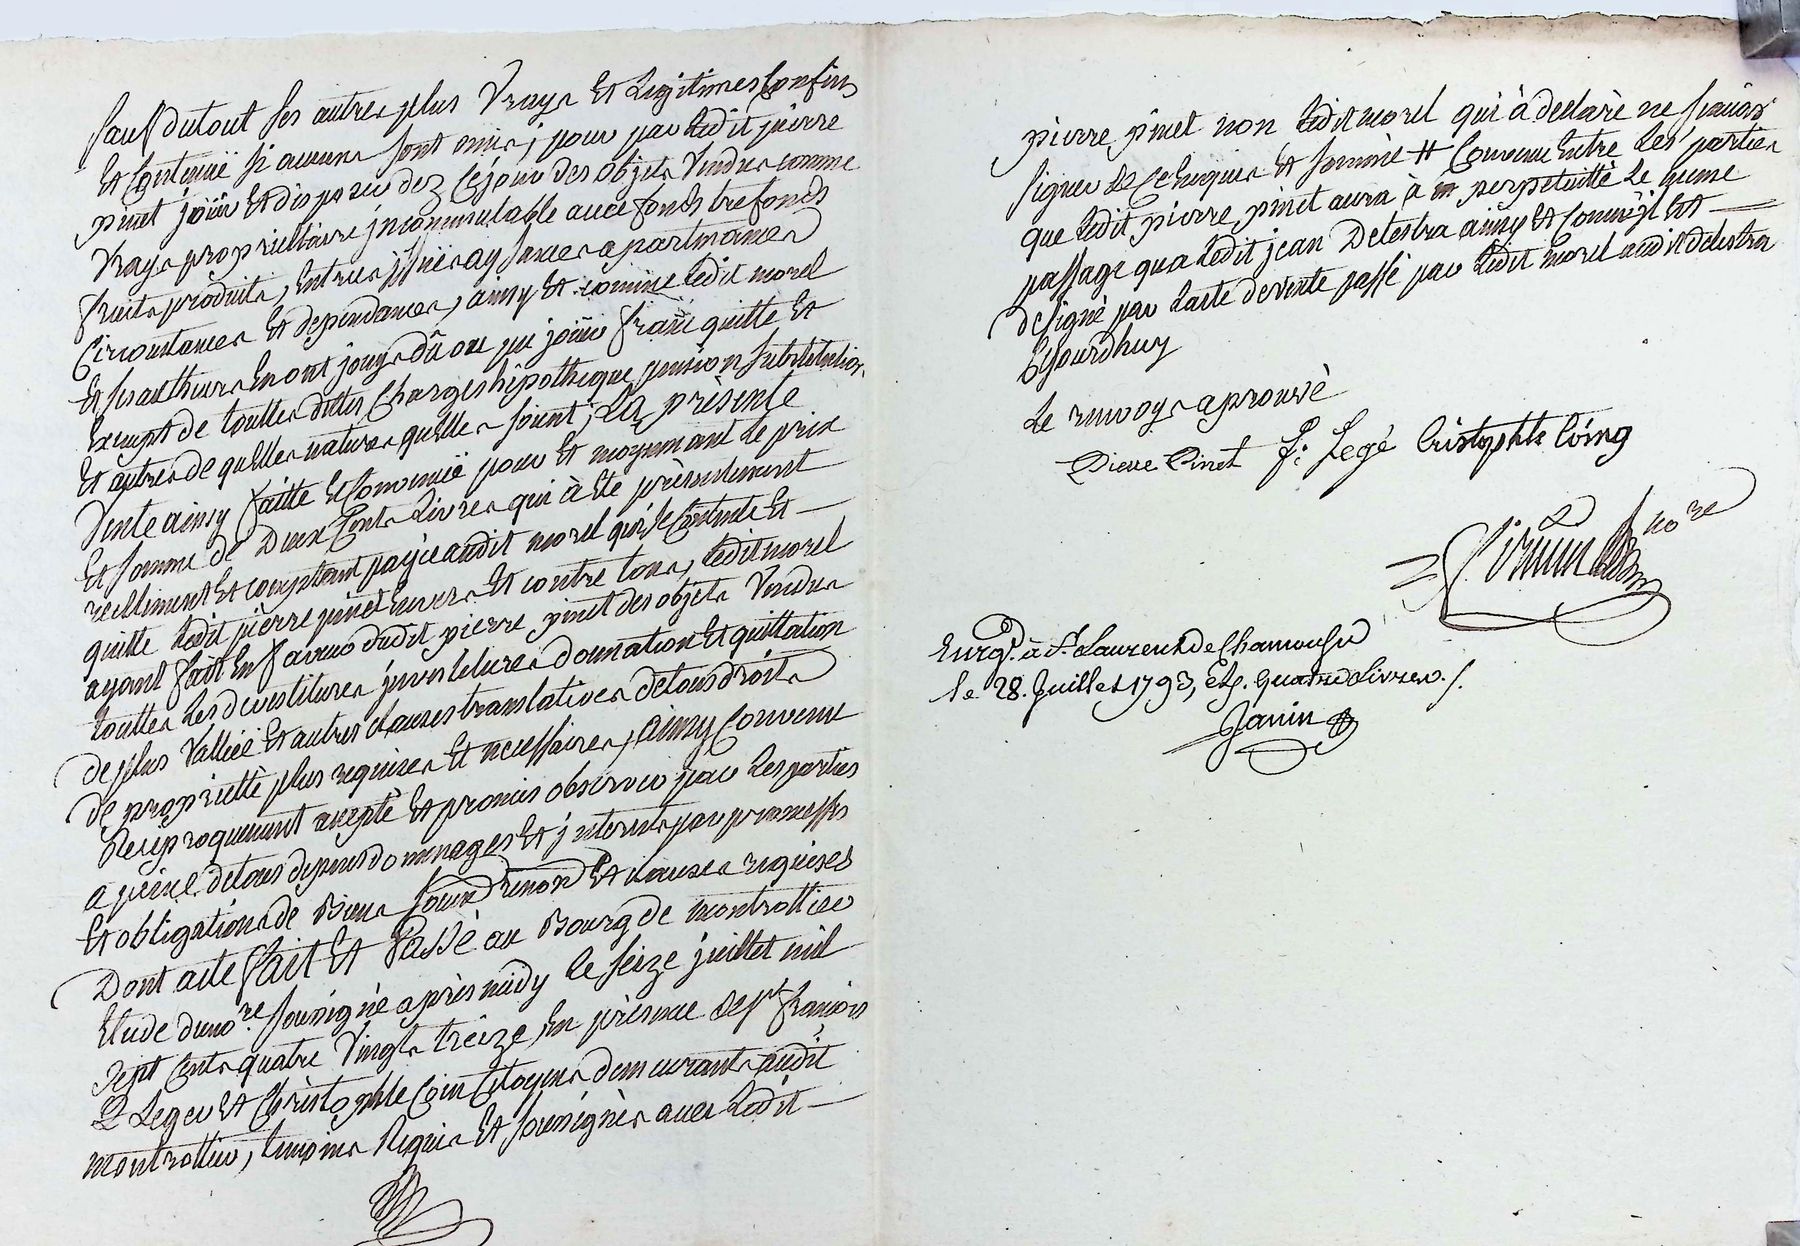 sauf du tout ses autres plus Vrays Et Legitimes Confins
Et Contenüe si aucuns sont omis, pour par Ledit pierre
pinet joüir Et disposer dez Cejour des objets Vendus comme
Vrays propriettaire jncommutable avec fonds trefonds
fruits produits, Entrées jssües aysances apartenances
Circonstances Et dependances, ainsy Et comme Ledit morel
Et ses autheurs En ont jouys dû ou pu joüir franc quitte Et
Exempt de touttes dettes Charges hipotheque pension substitution
Et autres de quelles natures quelles soient; La présente
Vente ainsy faitte Et Convenüe pour Et moyennant Le prix
Et somme de Deux Cents Livres qui à Eté présentement
reellement Et comptant payée audit morel qui s'e Contente Et
quitte Ledit pierre pinet Envers Et contre tous, Ledit morel
ayant fait En faveur dudit pierre pinet des objets Vendus
touttes Les devestitures jnvestitures donnation Et quittation
de plus Vallüe Et autres clauses translatives de tous droits
de propriettè plus requises Et necessaires, ainsy Convenu
Reciproquement accepté Et promis observer par Les parties
a peine de tous depens dommages Et jnterets par promesses
Et obligations de Biens soumissions renon.on Et clauses requises
Dont acte fait Et Passé au Bourg de montrottier
Etude du no.re soussigné après midy Le seize juillet mil
sept Cents quatre Vingts treize, En présence de s.r françois
Leger Et Christophle Coin Citoyens demeurants audit
montrottier, temoins Requis Et soussignés avec Ledit
pierre pinet non Ledit morel qui à declaré ne sçavoir
signer de ce Enquis Et sommé # Convenu Entre Les parties
que Ledit pierre pinet aura à perpetuitté Le meme
passage qu'a Ledit jean Delestra ainsy Et Comme jl est
designé par L'acte de vente passé par Ledit morel audit delestra
Ejourdhuy
Le renvoys aprouvé
Pierre Pinet f: Legé Cristophle Coing
no.re
Enrg.é à S.t Laurent de Chamousset
le 28. Juillet 1793, Reçu quatre livres ./.
Janin